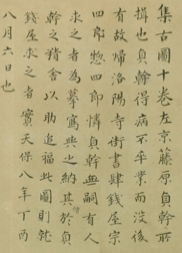 集古圖十巻左京藤原貞幹所
揖也貞幹得病不卒業而没後
有故帰洛陽寺街書肆錢屋宗
四郎惣四郎憐貞幹無嗣有人
求之者為摹寫與之納其於貞
幹之精舍以助追福此圖則就
錢屋求之者實天保八年丁酉
八月六日也